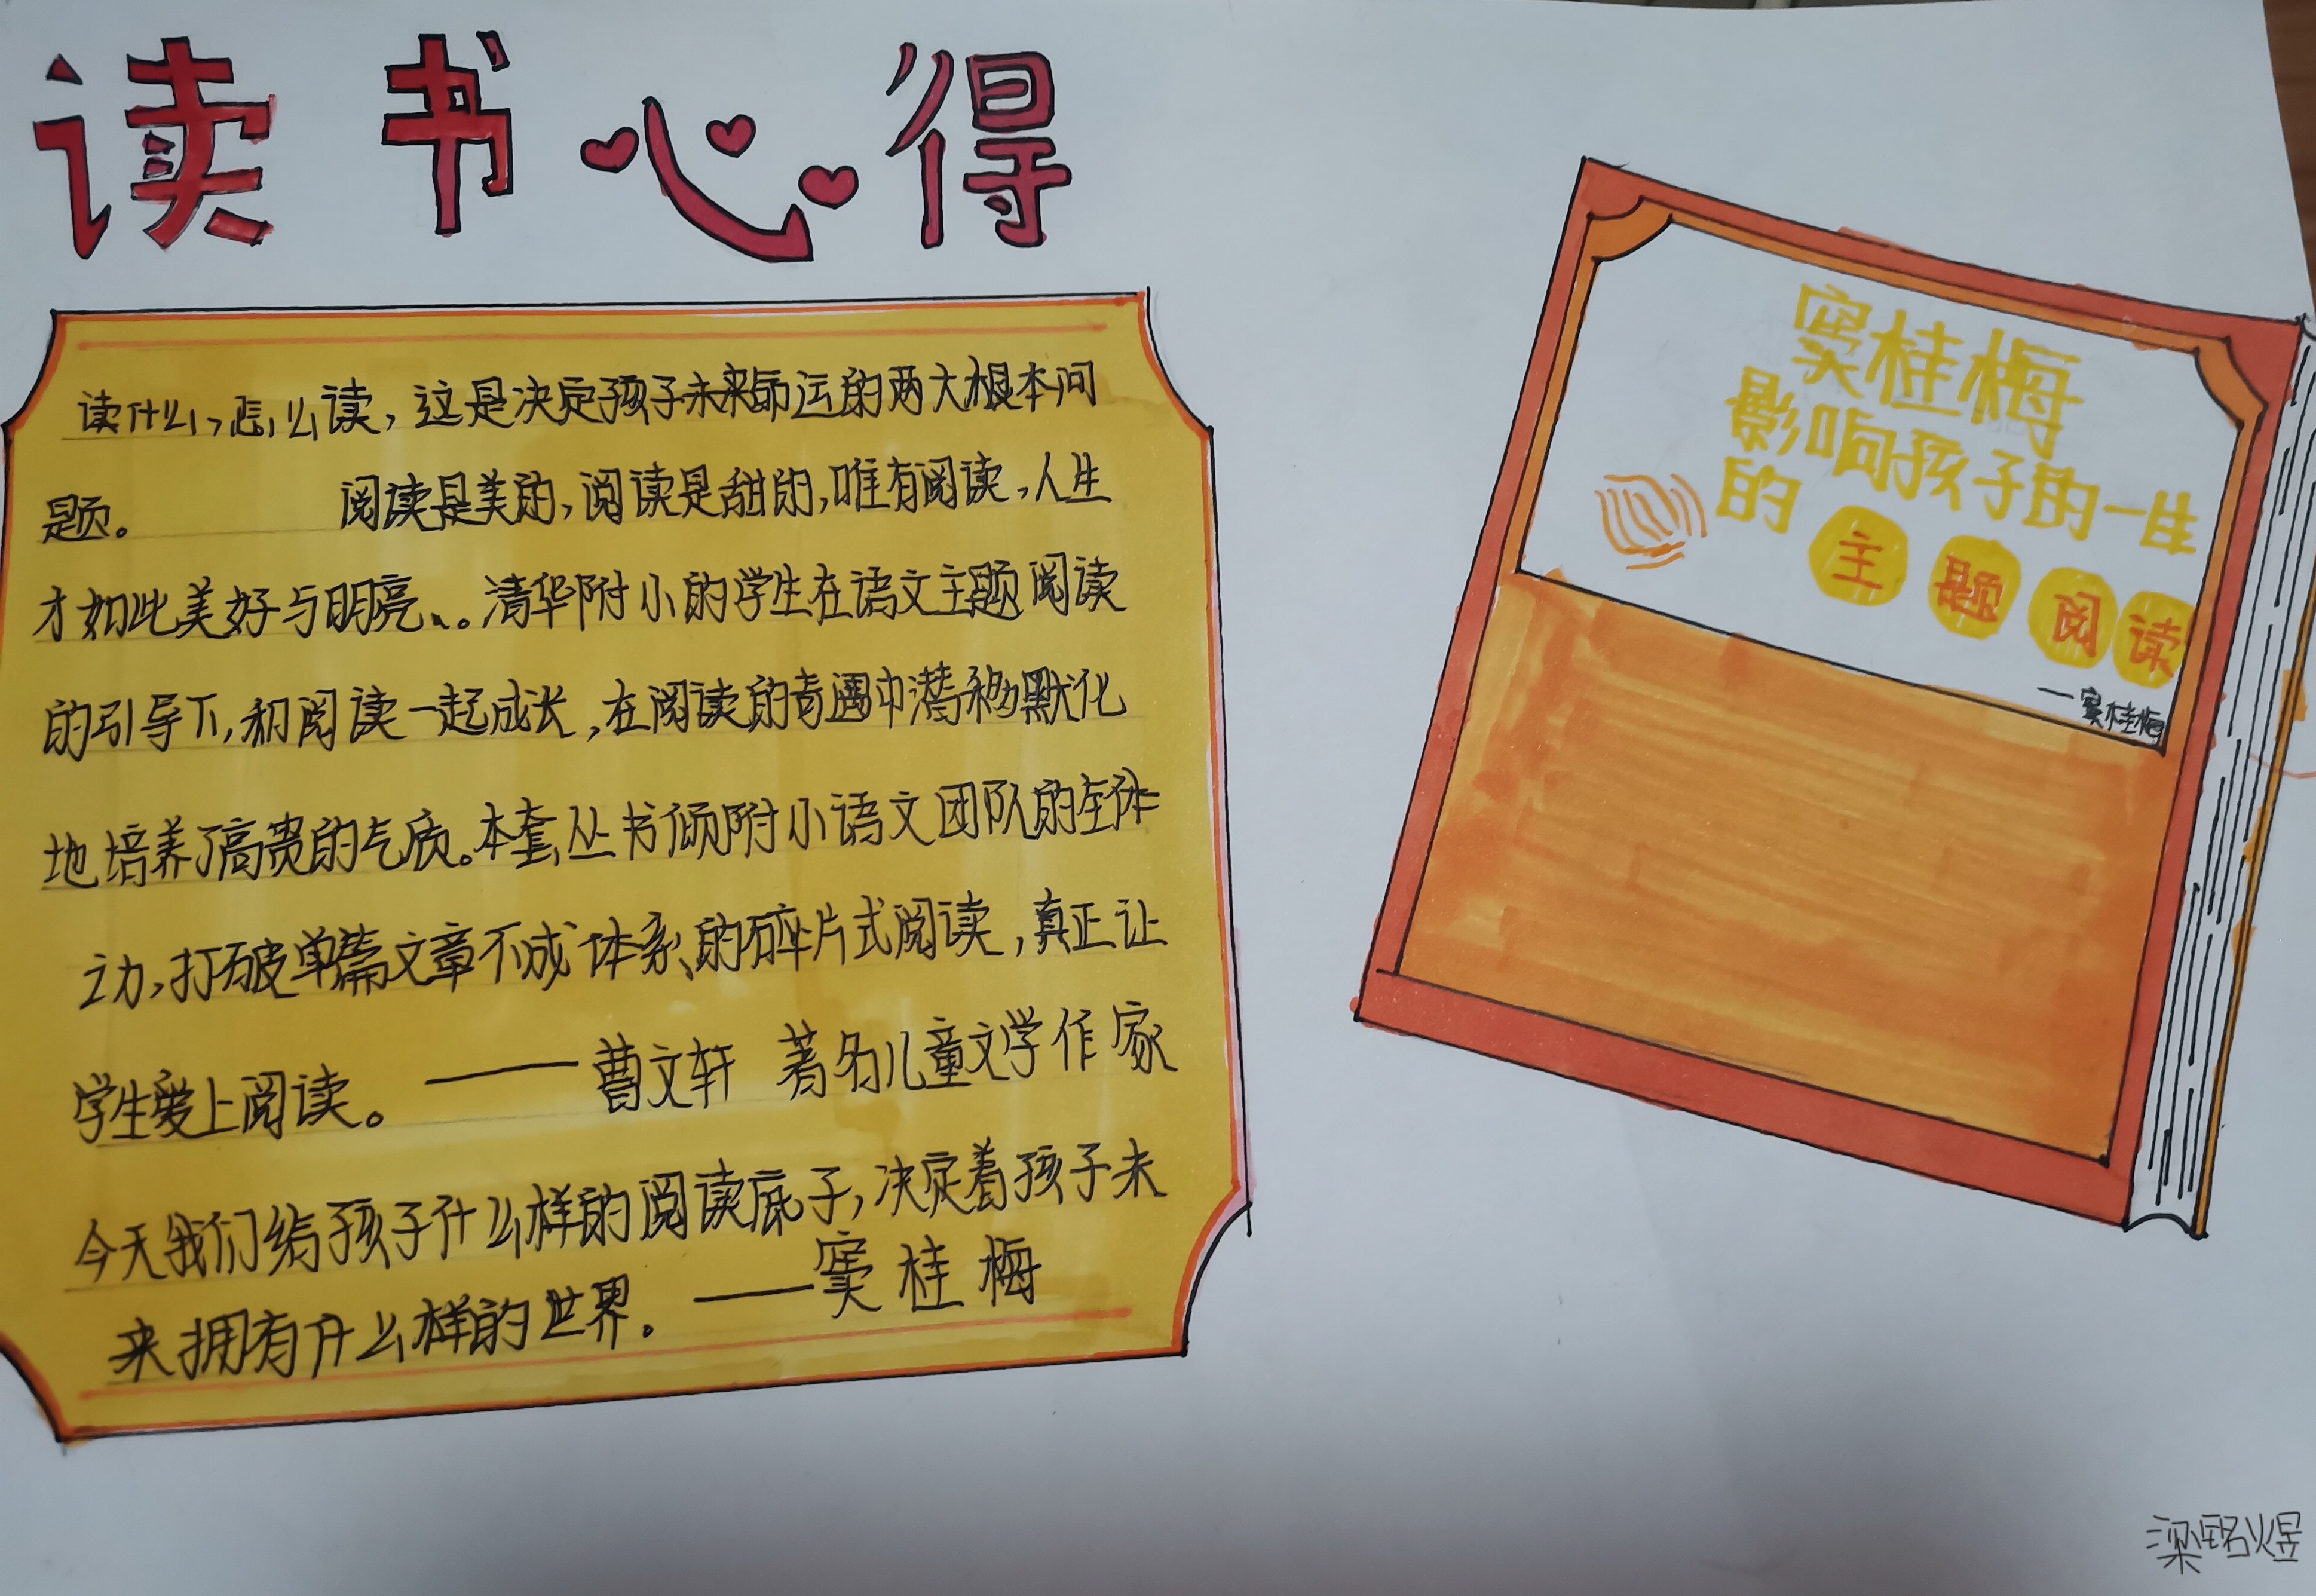 读书心得
读什么,怎么读,这是决定孩子未来命运的两大根本问
题。 阅读是美的,阅读是甜的,唯有阅读,人生
才如此美好与明亮、。清华附小的学生在语文主题阅读
的引导下,和阅读一起成长,在阅读的奇遇中潜移默化
地培养了高贵的气质。本套丛书倾附小语文团队的全体
之力,打破单篇文章不成体系的碎片式阅读,真正让
学生爱上阅读。——曹文轩 著名儿童文学作家
今天我们给孩子什么样的阅读底子,决定着孩子未
来拥有什么样的世界。——窦桂梅
窦桂梅
影响孩子的一生
的主题阅读
—窦桂梅
梁铭煜